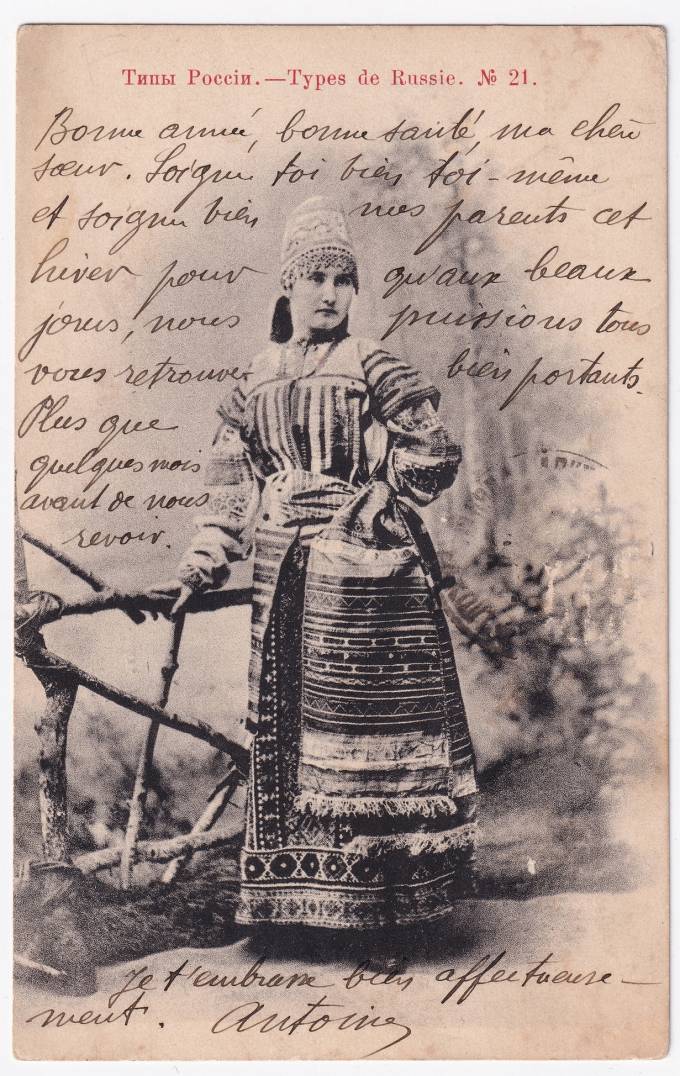 Типы Россiи.—Types de Russie. № 21.
Bonne année, bonne santé, ma chère
sœur. Soigne toi bien toi-même
et soigne bien mes parents cet
hiver pour qu'aux beaux
jours, nous puissions tous
vous retrouver bien portants.
Plus que
quelques mois
avant de nous
revoir.
Je t'embrasse bien affectueuse-
ment. Antoine